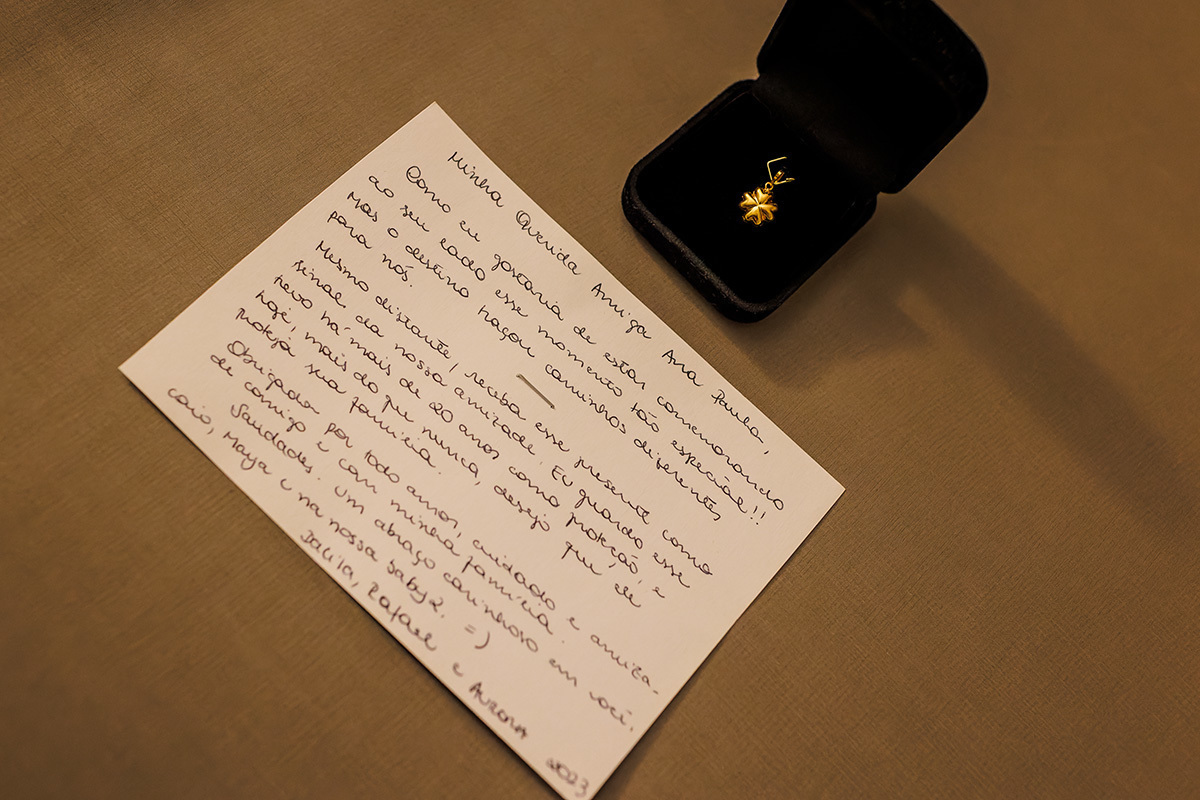 Minha Querida Amiga Ana Paula,
Como eu gostaria de estar comemorando
ao seu lado esse momento tão especial!!
Mas o destino traçou caminhos diferentes
para nós.
Mesmo distante, receba esse presente como
sinal da nossa amizade. Eu guardo esse
trevo há mais de 20 anos como proteção, e
hoje, mais do que nunca, desejo que ele
proteja sua família.
Obrigada por todo amor, cuidado e amiza-
de comigo e com minha família.
Saudades. Um abraço carinhoso em você,
Caio, Maya e na nossa baby2. =)
Dalila, Rafael e Aurora
2023